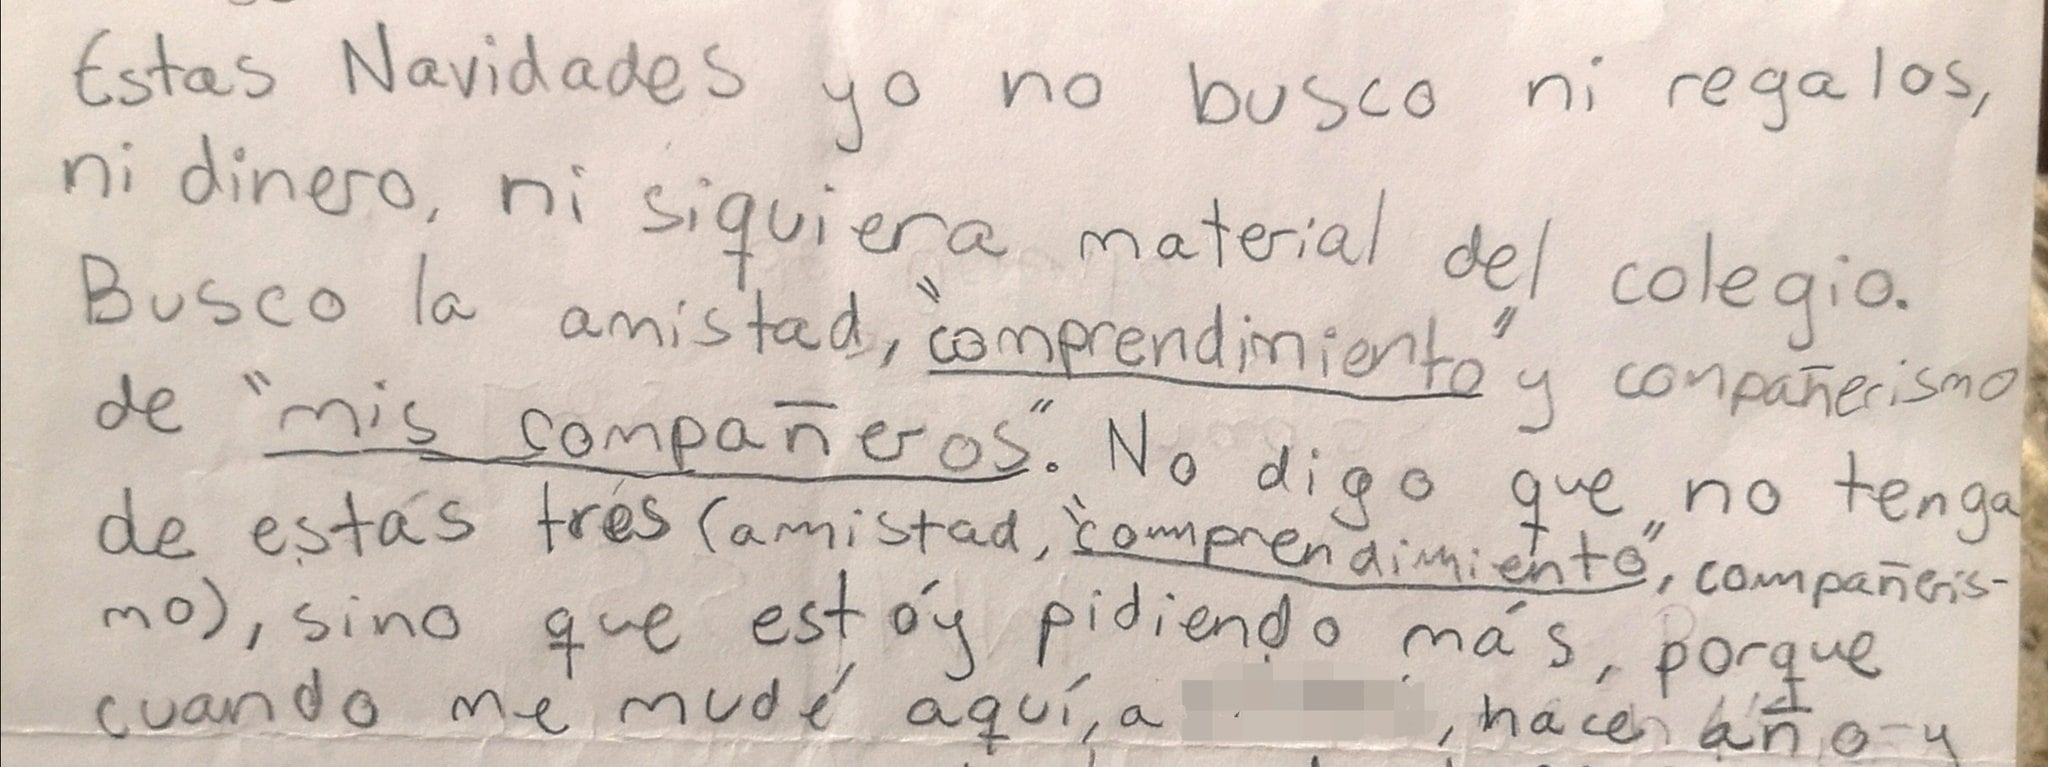 Estas Navidades yo no busco ni regalos,
ni dinero, ni siquiera material del colegio.
Busco la amistad, "comprendimiento" y compañerismo
de "mis compañeros". No digo que no tenga
de estás trés (amistad, "comprendimiento", compañeris-
mo), sino que estóy pidiendo más, porque
cuando me mudé aquí, a , hace año y